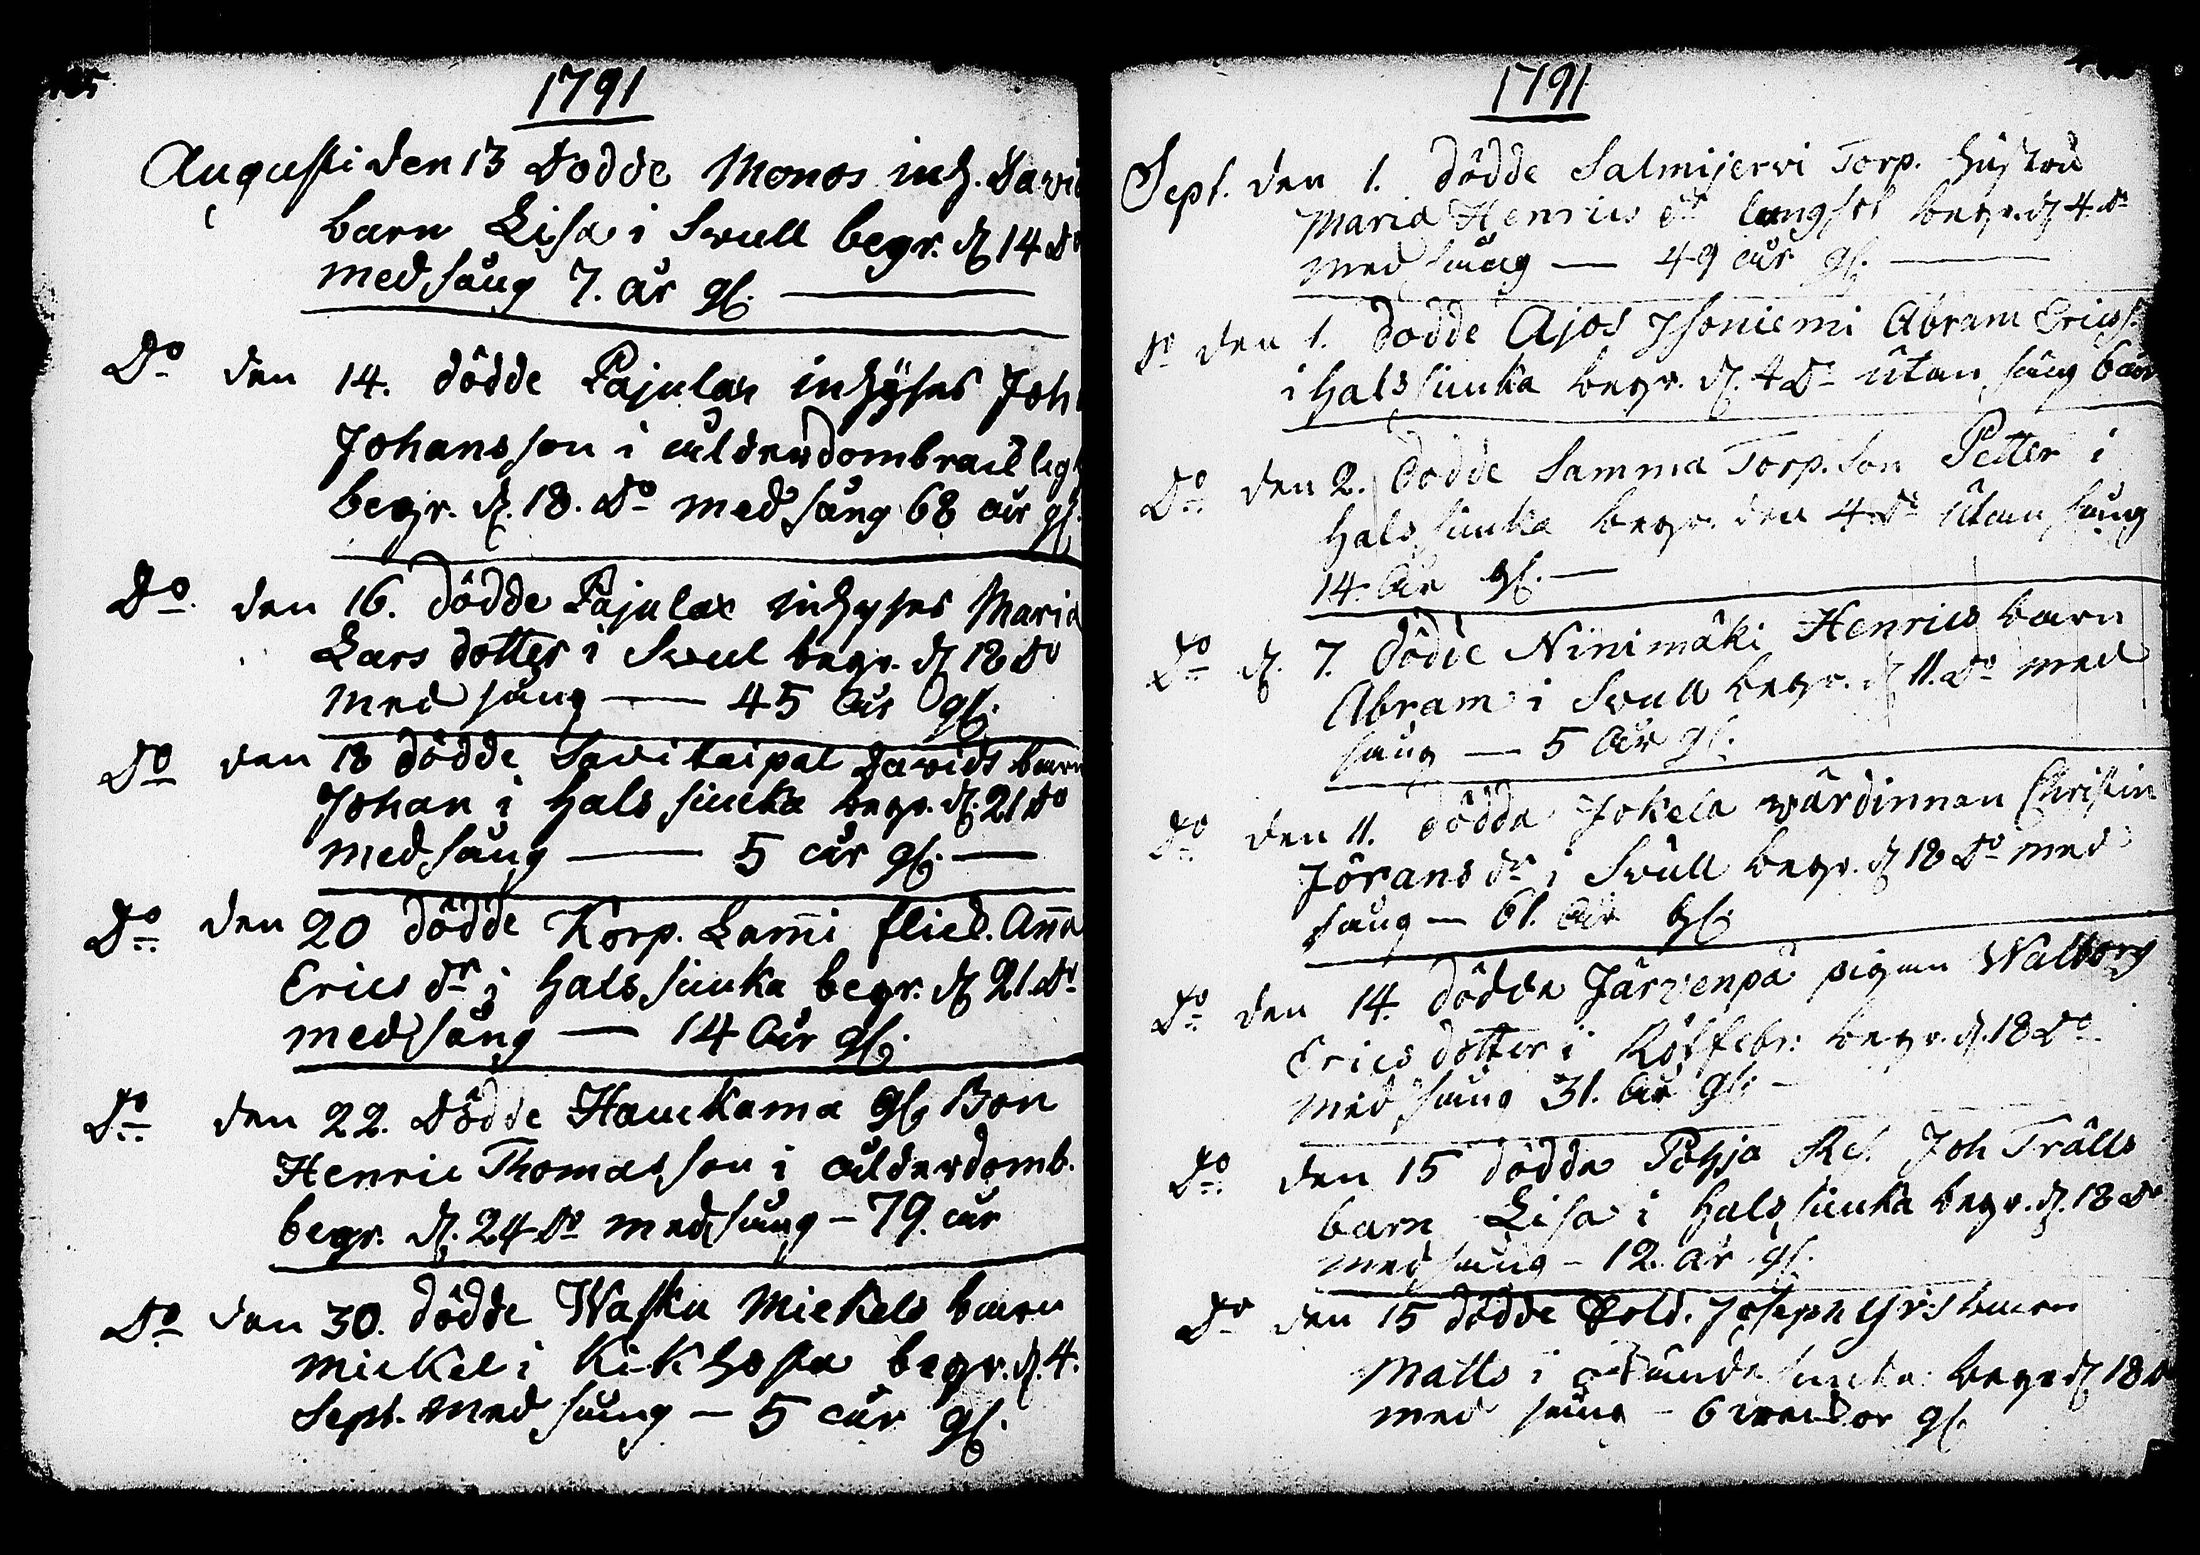 1791
Augusti den 13 Dodde Monos inh. David
barn Lisa i Svull begr. d. 14 do
med sång 7. år gl.
Do den 14. dödde Pajulax inhyses Joh
Johansson i ålderdombräcklig
begr. d. 18. do med sång 68 år gl.
Do den 16. dödde Pajulax inhyses Maria
Lars dotter i Svul begr. d. 18 do
med sång — 45 år gl.
Do den 18 dödde Savitaipal Davids barn
Johan i halssiuka begr. d. 21 do
med sång — 5 år gl. —
Do den 20 dödde Korp. Lam̄i flick. An̄a
Erics dr i halssiuka begr. d. 21. do
med sång — 14 år gl.
Do den 22. Dödde Hauckama gl. Bon
Henric Thomasson i ålderdomb.
begr. d. 24 do med sång – 79. år
Do den 30. dödde Wasku Mickels barn
Mickel i Kikhosta begr. d. 4.
Sept. med sång — 5 år gl.
1791
Sept. den 1. dödde Salmijervi Torp. hustru
Maria Henrics dr lungsot begr. d. 4. do
med sång — 49 år gl. —
do den 1. dodde Ajos Isoniemi Abram Ericss.
i halssiuka begr. d. 4 do utan sång 6 år
Do den 2. dodde Samma Torp. Son Petter i
halssiuka begr. den 4. do utan sång
14 år gl. —
Do d. 7. dödde Ninimäki Henrics barn
Abram i Svull begr. d. 11. do med
sång — 5 år gl.
do den 11. dödde Jokela värdinnan Christin
Jörans dr i Svull begr. d. 18 do med
sång — 61. år gl.
Do den 14. dödde Järvenpä pigan Walborg
Erics dotter i Rötfebr: begr. d. 18 do
med sång 31. år gl. –
Do den 15 dödde Pohja Joh Trälls
barn Lisa i halssiuka begr. d. 18 do
med sång – 12. år gl.
Do den 15 dödde Sold. Joseph barn
Matts i begr. d. 18 do
med sång – 6 veckor gl.